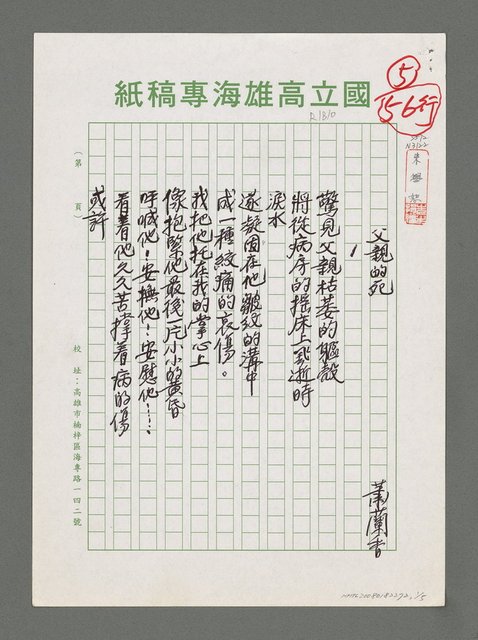 國立高雄海專稿紙
⑤
56行
R1310
N3122
父親的死
葉蘭香
1
驚見父親枯萎的軀殼
將從病房的搖床上飛逝時
淚水
遂凝固在他皺紋的溝中
成一種絞痛的哀傷。
我把他托在我的掌心上
像抱緊他最後一片小小的黃昏
呼喊他！安撫他！安慰他……
看著他久久苦撐着病的傷
或許
（第 頁）
校址：高雄市楠梓區海專路一四二號
NMTL20080182272, 1/5